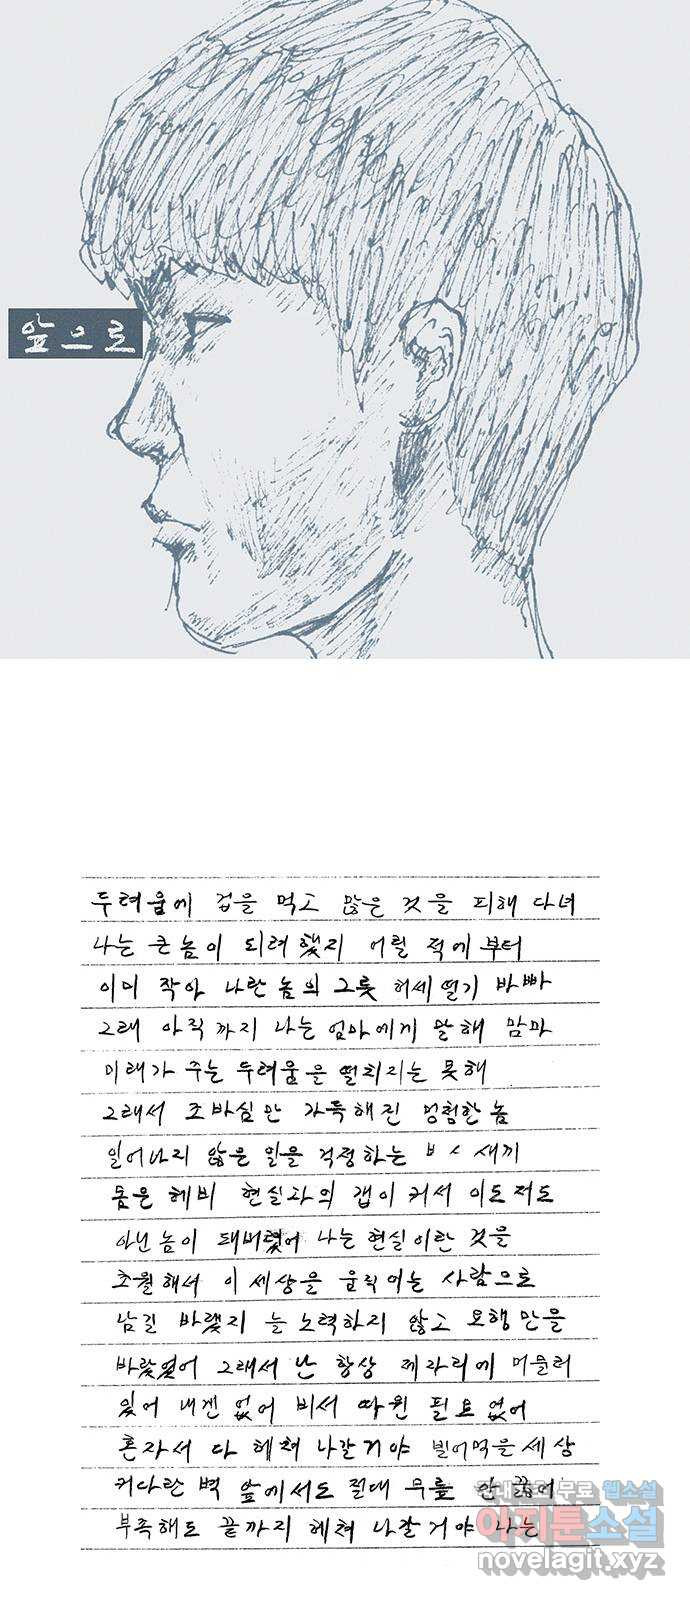 앞으로
두려움에 겁을 먹고 많은 것을 피해 다녀
나는 큰놈이 되려 했지 어릴 적에부터
이미 작아 나란 놈의 그릇 허세 떨기 바빠
그래 아직까지 나는 엄마에게 말해 맘마
미래가 주는 두려움을 떨치지는 못해
그래서 조바심만 가득해진 멍청한 놈
일어나지 않은 일을 걱정하는 ㅂㅅ새끼
몸은 헤비 현실과의 갭이 커서 이도저도
아닌놈이 돼버렸어 나는 현실이란 것을
초월해서 이 세상을 움직이는 사람으로
남길 바랬지 늘 노력하지 않고 요행만을
바랐었어 그래서 난 항상 제자리에 머물러
있어 내겐 없어 비서 따윈 필요없어
혼자서 다 헤쳐 나갈거야 빌어먹을 세상
커다란 벽 앞에서도 절대 무릎 안 꿇어
부족해도 끝까지 헤쳐 나갈거야 나는
무료 웹소설
아지툰소설
novelagit.xyz